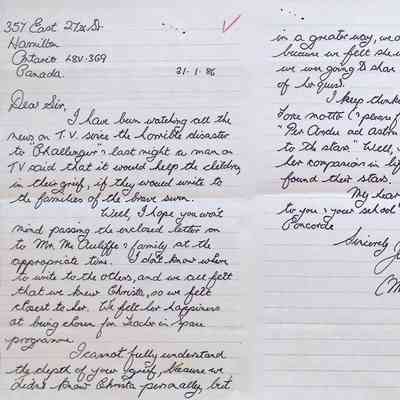 357 East 27th St
Hamilton
Ontario L8V·3G9
Canada.
31·1·86
Dear Sir,
I have been watching all the
news on T.V. since the horrible disaster
to "Challenger" last night a man on
TV said that it would help the children
in their grief, if they would write to
the families of the brave seven.
Well, I hope you won't
mind passing the enclosed letter on
to Mr. Mc Auliffe & family at the
appropriate time. I don't know where
to write to the others, and we all felt
that we knew Christa, so we felt
closest to her. We felt her happiness
at being chosen for Teacher in Space
programme.
I cannot fully understand
the depth of your grief, because we
didn't know Christa personally, but
in a greater way, we a
because we felt she w
we were going to shar
of her
I keep thinki
Force motto
"Per Ardua ad Astra
to the stars." Well,
her companions in lif
found their stars.
My hear
to you & your school
Concorde
Sincerely